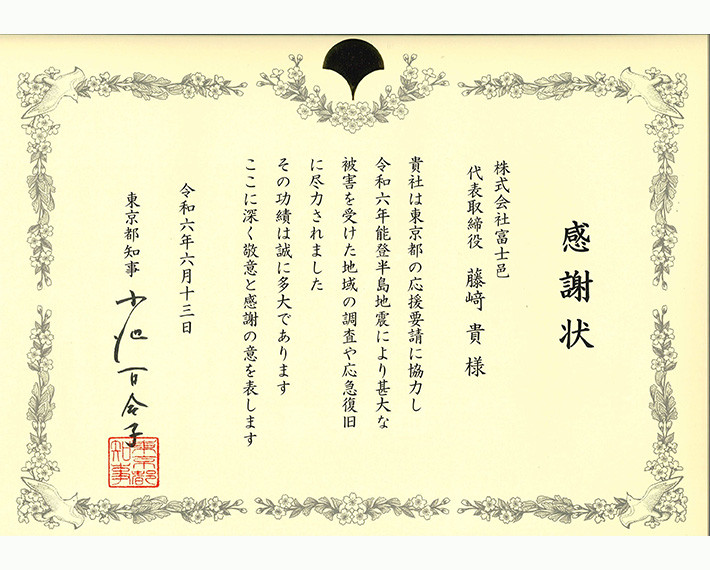 感謝状
株式会社富士邑
代表取締役 藤﨑 貴 様
貴社は東京都の応援要請に協力し
令和六年能登半島地震により甚大な
被害を受けた地域の調査や応急復旧
に尽力されました
その功績は誠に多大であります
ここに深く敬意と感謝の意を表します
令和六年六月十三日
東京都知事 小池百合子
東京都
知事